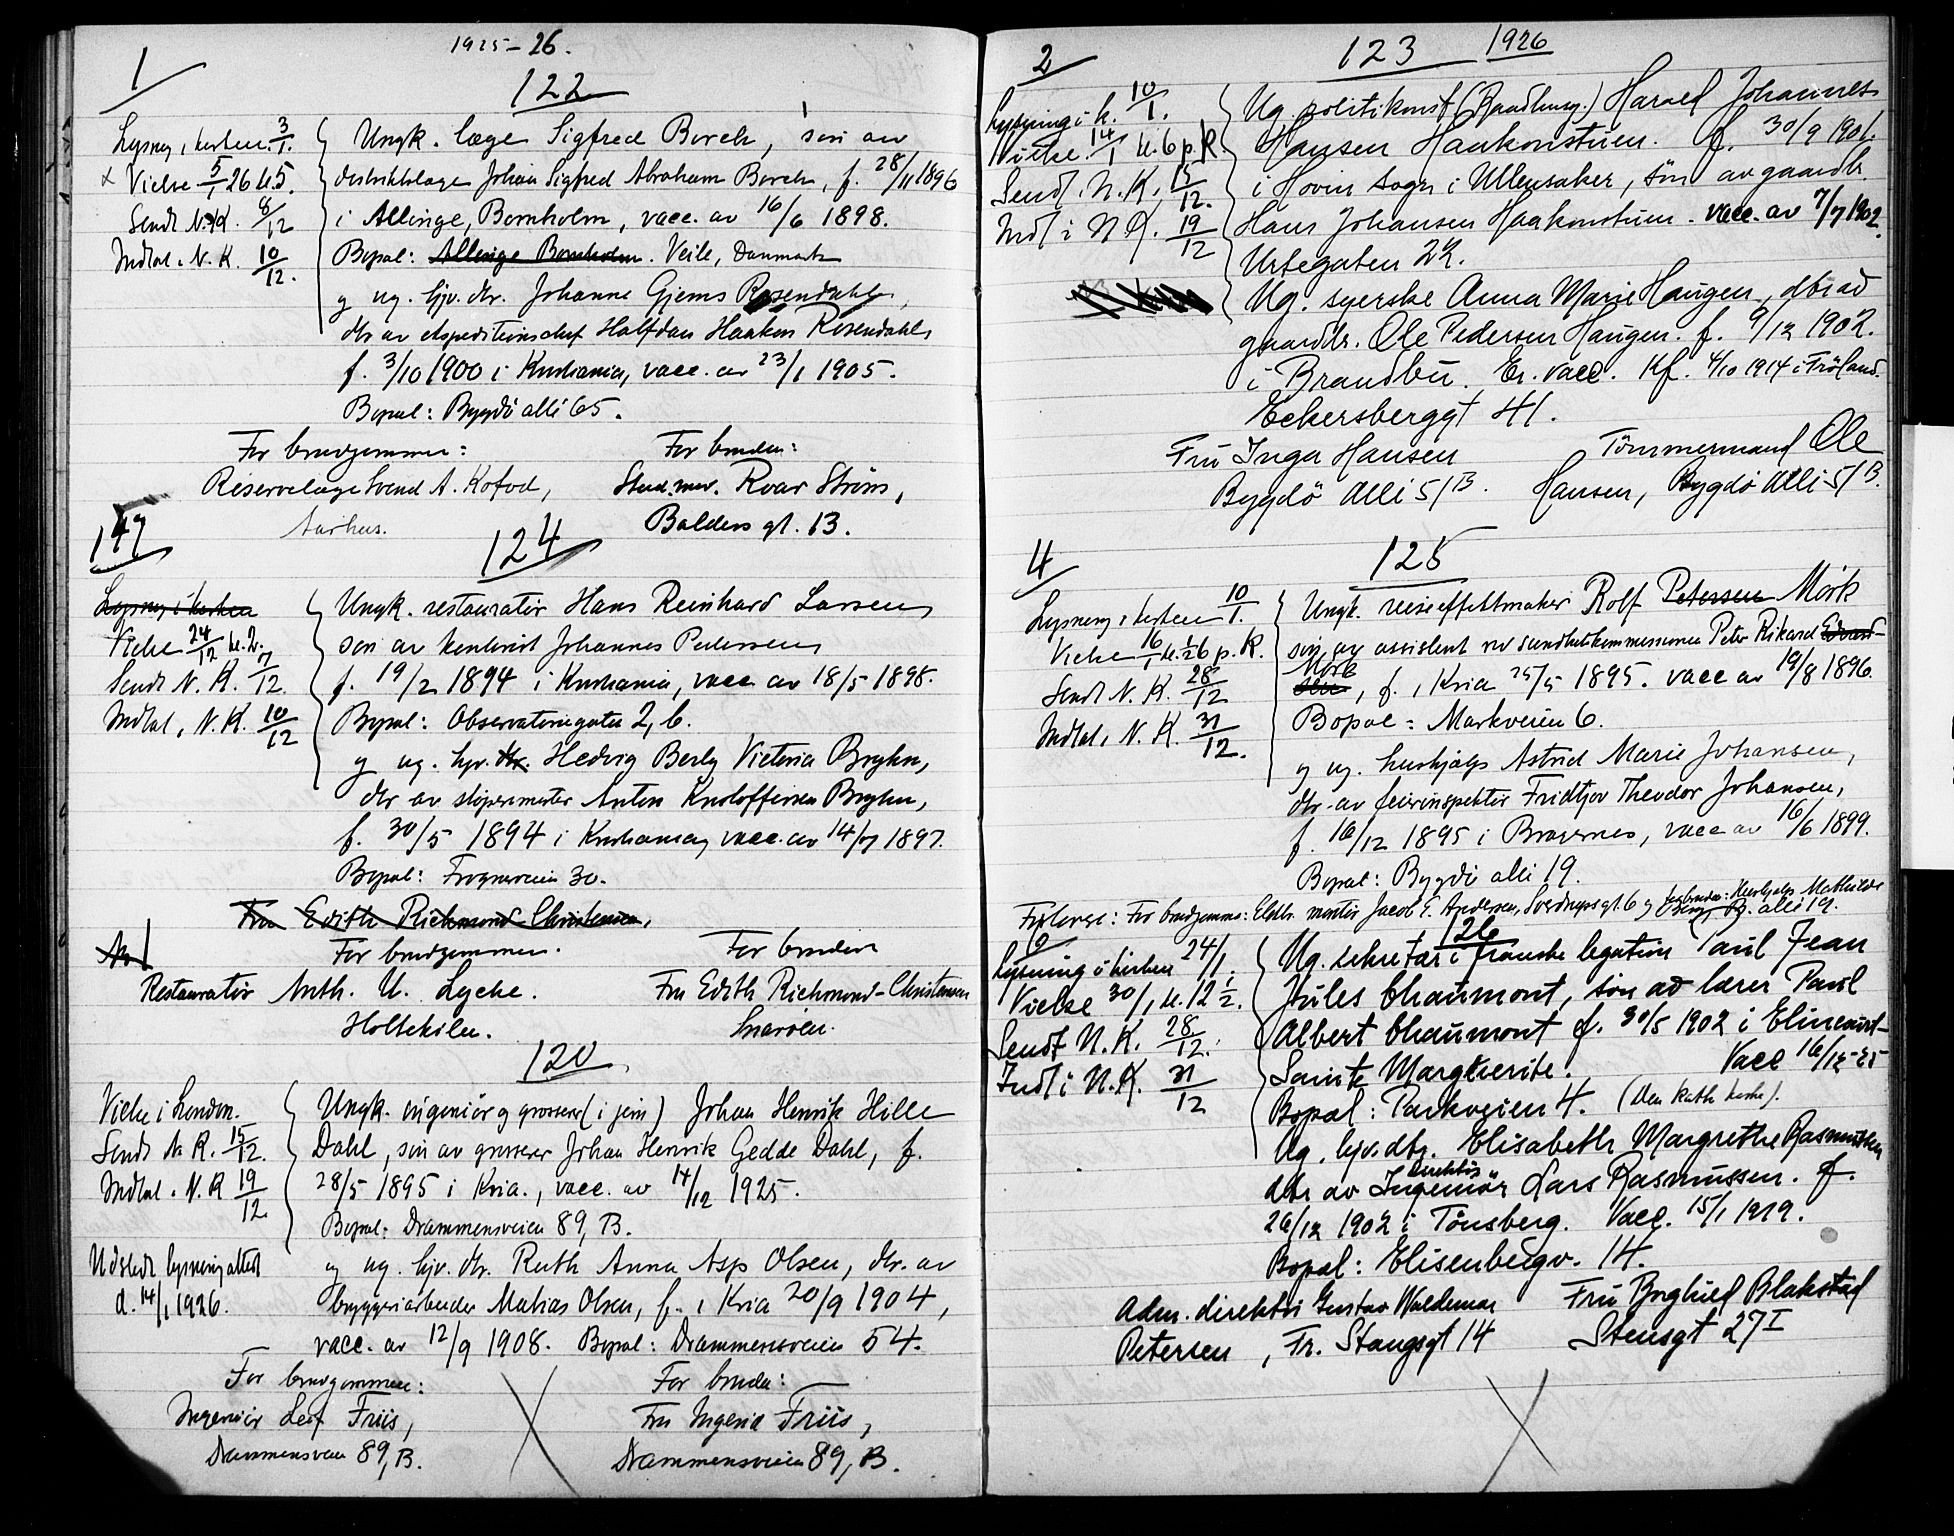 1925-26.
1
122
Lysning i kirken 3/1.
x Vielse 5/1 26 kl. 5.
Sendt N.K. 8/12
Indtat. N.K. 10/12.
Ungk. læge Sigfred Borch, søn av
distriktslæge Johan Sigfred Abraham Borch, f. 28/11 1896
i Allinge, Bornholm, vacc. av 16/6 1898.
Bopæl: Allinge Bornholm. Veile, Danmark
og ug. hjv. dtr. Johanne Gjems Rosendahl,
dtr av ekspeditionschef Halfdan Haakon Rosendahl,
f. 3/10 1900 i Kristiania, vacc. av 23/1 1905.
Bopæl: Bygdö allé 65.
For brudgommen:
For bruden:
Reservelæge Svend A. Kofod,
Stud. Roar Ström,
Aarhus.
Balders gt. 13.
147
124
Lysning i kirken
Vielse 24/12 kl. 2.
Sendt N.K. 7/12.
Indtat. N.K. 10/12
Ungk. restauratör Hans Reinhard Larsen,
søn av kontorist Johannes Pedersen
f. 19/2 1894 i Kristiania, vacc. av 18/5 1898.
Bopæl: Observatoriegaten 2, b.
og ug. hjv. dtr. Hedvig Berly Victoria Bryhn,
dtr av støpermester Anton Kristoffersen Bryhn,
f. 30/5 1894 i Kristiania, vacc. av 14/7 1897.
Bopæl: Frognerveien 30.
Fru Edith Richmond Christensen,
For brudgommen.
For bruden
Restauratör Anth. U. Lyche.
Fru Edith Richmond-Christensen
Holtekilen.
Snarøen.
120
Vielse i London.
Sendt N.K. 15/12.
Indtat. N.K 19/12
Utstedt lysningsattest
d. 14/1 1926.
Ungk. ingeniör og grosserer (i jern) Johan Henrik Hille
Dahl, søn av grosserer Johan Henrik Gedde Dahl, f.
28/5 1895 i Kria., vacc. av 14/12 1925.
Bopæl: Drammensveien 89, B.
og ug. hjv. dtr. Ruth Anna Asp Olsen, dtr. av
bryggeriarbeider Matias Olsen, f. i Kria 20/9 1904,
vacc. av 12/9 1908. Bopæl: Drammensveien 54.
For brudgommen:
For bruden:
Ingeniör Leif Friis,
Fru Ingerid Friis,
Drammensveien 89, B.
Drammensveien 89, B.
2
123
1926
Lysning i k. 10/1.
Vielse 14/1 kl. 6 p. K
Sendt. N.K. 15/12.
Indt i N.K. 19/12
Ug politikonst (Raadhusg.) Harald Johannes
Hansen Haakonstuen. f. 30/9 1901.
i Hovin sogn i Ullensaker, søn av gaardbr.
Hans Johansen Haakonstuen. vacc. av 7/7 1902.
Urtegaten 22.
Ug. syerske Anna Marie Haugen, dtr ad
gaardbr. Ole Pedersen Haugen. f. 9/12 1902.
i Brandbu. Er vacc. Kf. 4/10 1914 i Fröland.
Eckersbergst 41.
Fru Inga Hansen
Tömmermand Ole
Bygdö allé 51 B.
Hansen, Bygdö allé 51 B.
4
125
Lysning i kirken 10/1.
Vielse 16/1 kl. 1/2 6 p. K.
Sendt N.K. 28/12
Indtat. N.K. 31/12.
Ungk. reiseeffektmaker Rolf Petersen Mörk
søn av assistent ved sundhetskommissionen Peter Rikard Edvard-
sen Mörk, f. i Kria 25/5 1895. vacc av 19/8 1896.
Bopæl: Markveien 6.
og ug. hushjælp Astrid Marie Johansen,
dtr. av feierinspektör Fridtjov Theodor Johansen,
f. 16/12 1895 i Bragernes, vacc av 16/6 1899.
Bopæl: Bygdö allé 19.
Forlovere: For brudgommen: Elektr. montör Jacob E. Andersen, Sverdrupsgt. 6 og for bruden: Hushjælp Mathilde
B. allé 19.
6
126
Lysning i kirken 24/1.
Vielse 30/1 kl. 12 1/2.
Sendt N.K. 28/12.
Indt i N.K. 31/12
Ug. sekretær i franske legation Paul Jean
Jules Chaumont, søn ad lærer Paul
Albert Chaumont f. 30/5 1902 i Elincourt-
Sainte Marguerite.
Vacc 16/12-25
Bopæl: Parkveien 4. (Den kath. kirke).
Ug. hjv. dtr. Elisabeth Margrethe Rasmussen
dtr av direktör Ingeniör Lars Rasmussen. f.
26/12 1902 i Tönsberg. Vacc. 15/1 1919.
Bopæl: Elisenbergv. 14.
Adm. direktör Gustav Waldemar
Fru Borghild Blakstad
Petersen, Fr. Stangsgt 14
Stensgt 27 I